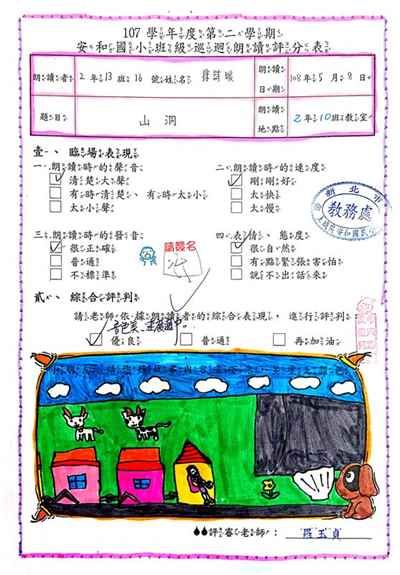 107學年度第二學期
安和國小班級巡迴朗讀評分表
朗讀者 2年13班16號姓名 朗讀日期 108年5月9日
題目 山洞 朗讀地點 2年10班教室
壹、臨場表現
一、朗讀時的聲音 二、朗讀時的速度
清楚大聲 剛剛好
有時清楚、有時太小 太快
太小聲 太慢
新北市
教務處
三、朗讀時的發音 請簽名 四、表情、態度
很正確 很自然
普通 有點緊張害怕
不標準 說不出話來
貳、綜合評判
請老師依據朗讀者的綜合表現,進行評判
優良 普通 再加油
評審老師: